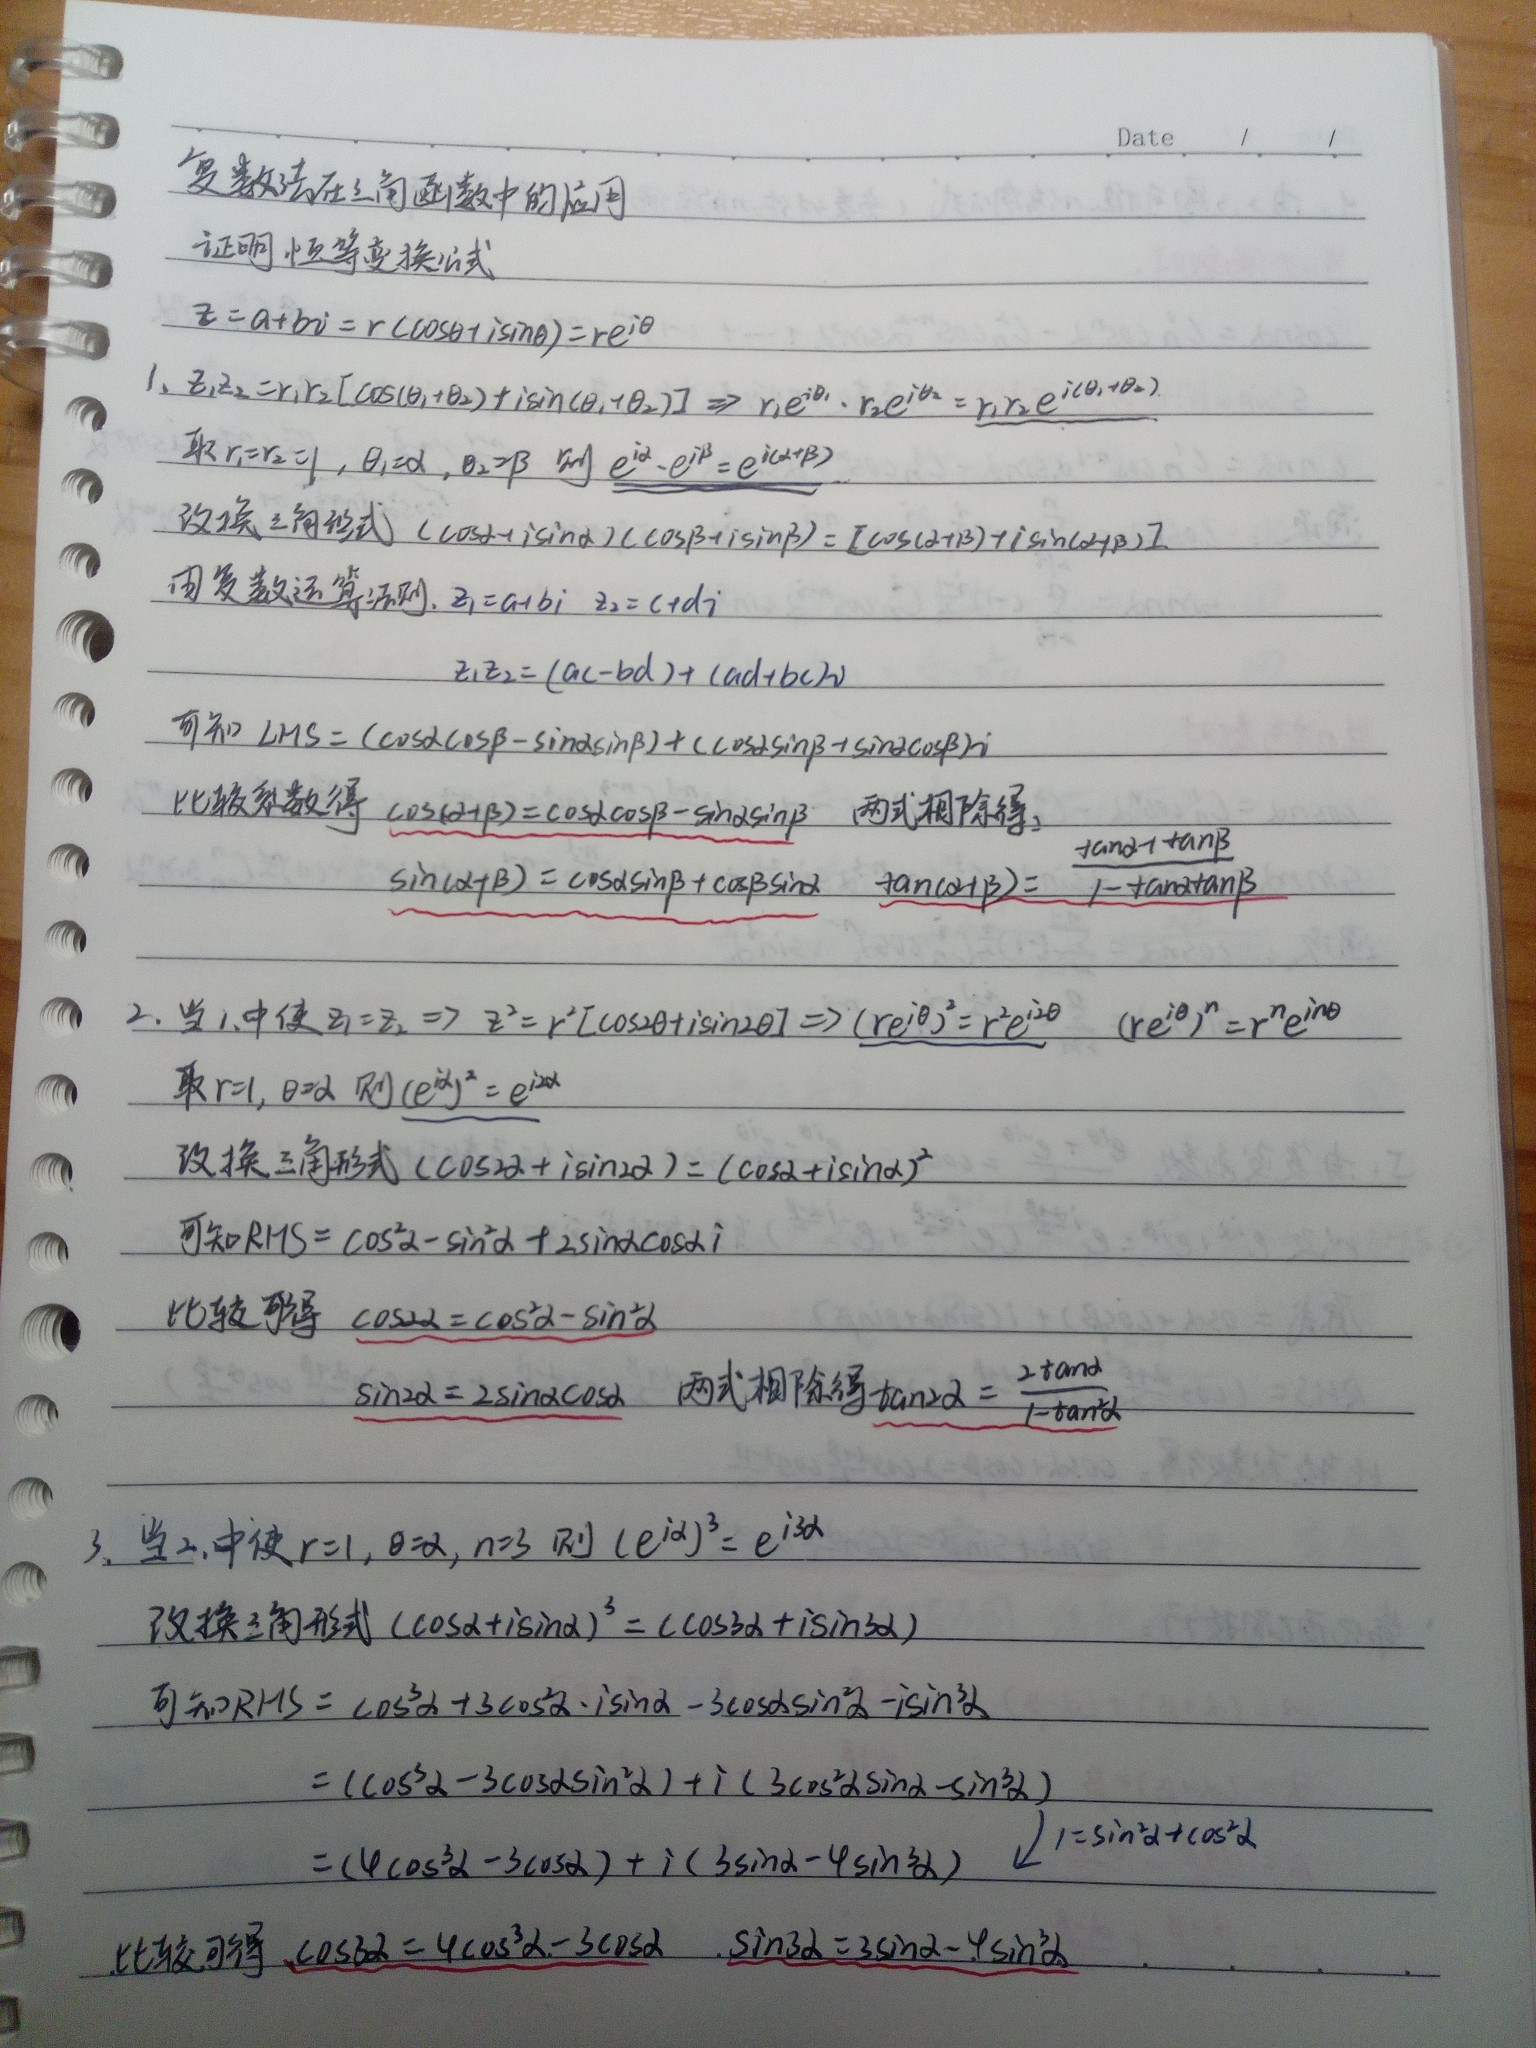 Date / /
复数法在三角函数中的应用
证明恒等变换公式
z=a+bi=r(cosθ+isinθ)=re^{iθ}
1. z₁z₂=r₁r₂[cos(θ₁+θ₂)+isin(θ₁+θ₂)] ⇒ r₁e^{iθ₁}·r₂e^{iθ₂}=r₁r₂e^{i(θ₁+θ₂)}
取r₁=r₂=1, θ₁=α, θ₂=β 则 e^{iα}·e^{iβ}=e^{i(α+β)}
改换三角形式 (cosα+isinα)(cosβ+isinβ)=[cos(α+β)+isin(α+β)]
由复数运算法则. z₁=a+bi z₂=c+di
z₁z₂=(ac-bd)+(ad+bc)i
可知 LHS=(cosαcosβ-sinαsinβ)+(cosαsinβ+sinαcosβ)i
比较系数得 cos(α+β)=cosαcosβ-sinαsinβ 两式相除得,
sin(α+β)=cosαsinβ+cosβsinα tan(α+β)=\frac{tanα+tanβ}{1-tanαtanβ}
2. 当1.中使z₁=z₂ ⇒ z²=r²[cos2θ+isin2θ] ⇒ (re^{iθ})²=r²e^{i2θ} (re^{iθ})ⁿ=rⁿe^{inθ}
取r=1, θ=α 则(e^{iα})²=e^{i2α}
改换三角形式(cos2α+isin2α)=(cosα+isinα)²
可知RHS=cos²α-sin²α+2sinαcosαi
比较可得 cos2α=cos²α-sin²α
sin2α=2sinαcosα 两式相除得tan2α=\frac{2tanα}{1-tan²α}
3. 当2.中使r=1, θ=α, n=3 则 (e^{iα})³=e^{i3α}
改换三角形式(cosα+isinα)³=(cos3α+isin3α)
可知RHS=cos³α+3cos²α·isinα-3cosαsin²α-isin³α
=(cos³α-3cosαsin²α)+i(3cos²αsinα-sin³α)
1=sin²α+cos²α
=(4cos³α-3cosα)+i(3sinα-4sin³α)
比较可得 cos3α=4cos³α-3cosα sin3α=3sinα-4sin³α